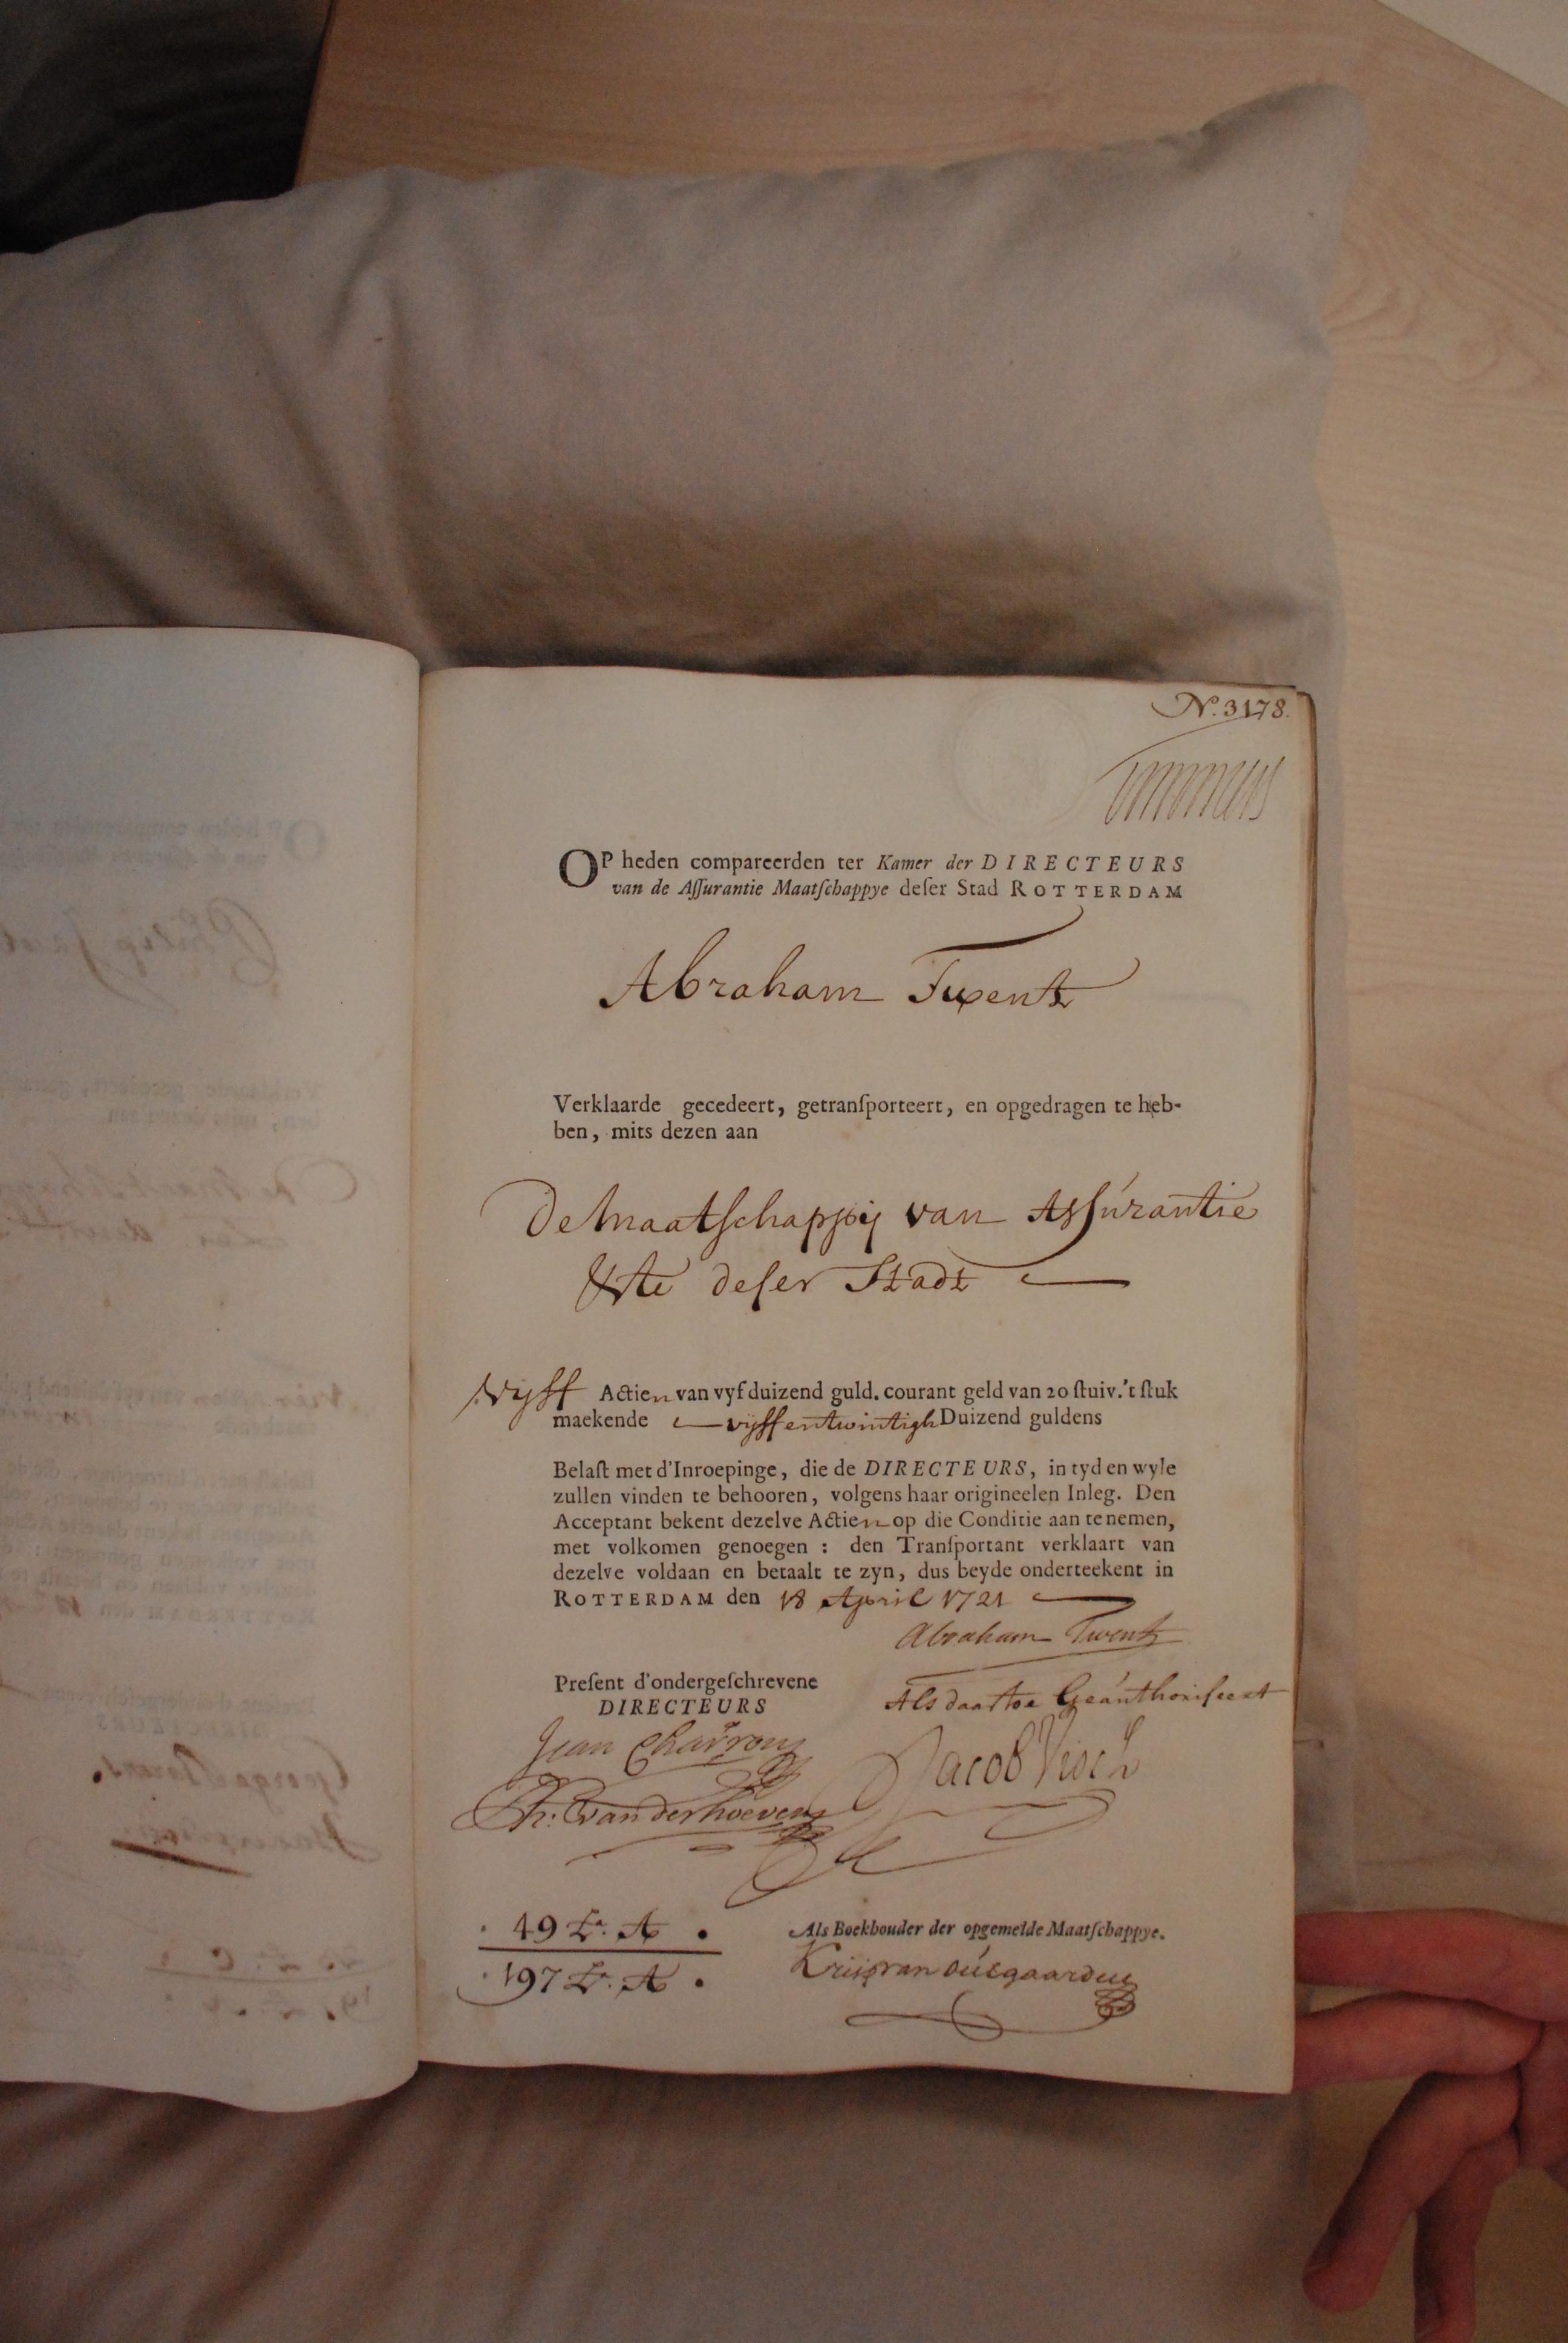 N. 3178.
OP heden compareerden ter Kamer der DIRECTEURS
van de Aſſurantie Maatſchappye deſer Stad ROTTERDAM
Abraham Twent
Verklaarde gecedeert, getranſporteert, en opgedragen te heb-
ben, mits dezen aan
De Maatſchappij van Aſſurantie
&te deſer Stadt
Vyff Actien van vyf duizend guld. courant geld van 20 ſtuiv. 't ſtuk
maekende vyffentwintigh Duizend guldens
Belaſt met d'Inroepinge, die de DIRECTEURS, in tyd en wyle
zullen vinden te behooren, volgens haar origineelen Inleg. Den
Acceptant bekent dezelve Actien op die Conditie aan te nemen,
met volkomen genoegen : den Tranſportant verklaart van
dezelve voldaan en betaalt te zyn, dus beyde onderteekent in
ROTTERDAM den 18 April 1721
Abraham Twent
Preſent d'ondergeſchrevene
DIRECTEURS
Als daartoe Geauthoriſeert
Jean Charron
Jacob Visch
Ph: van der hoeven
49 La. A
197 La. A
Als Boekhouder der opgemelde Maatſchappye.
Kriſp van Outgaarden